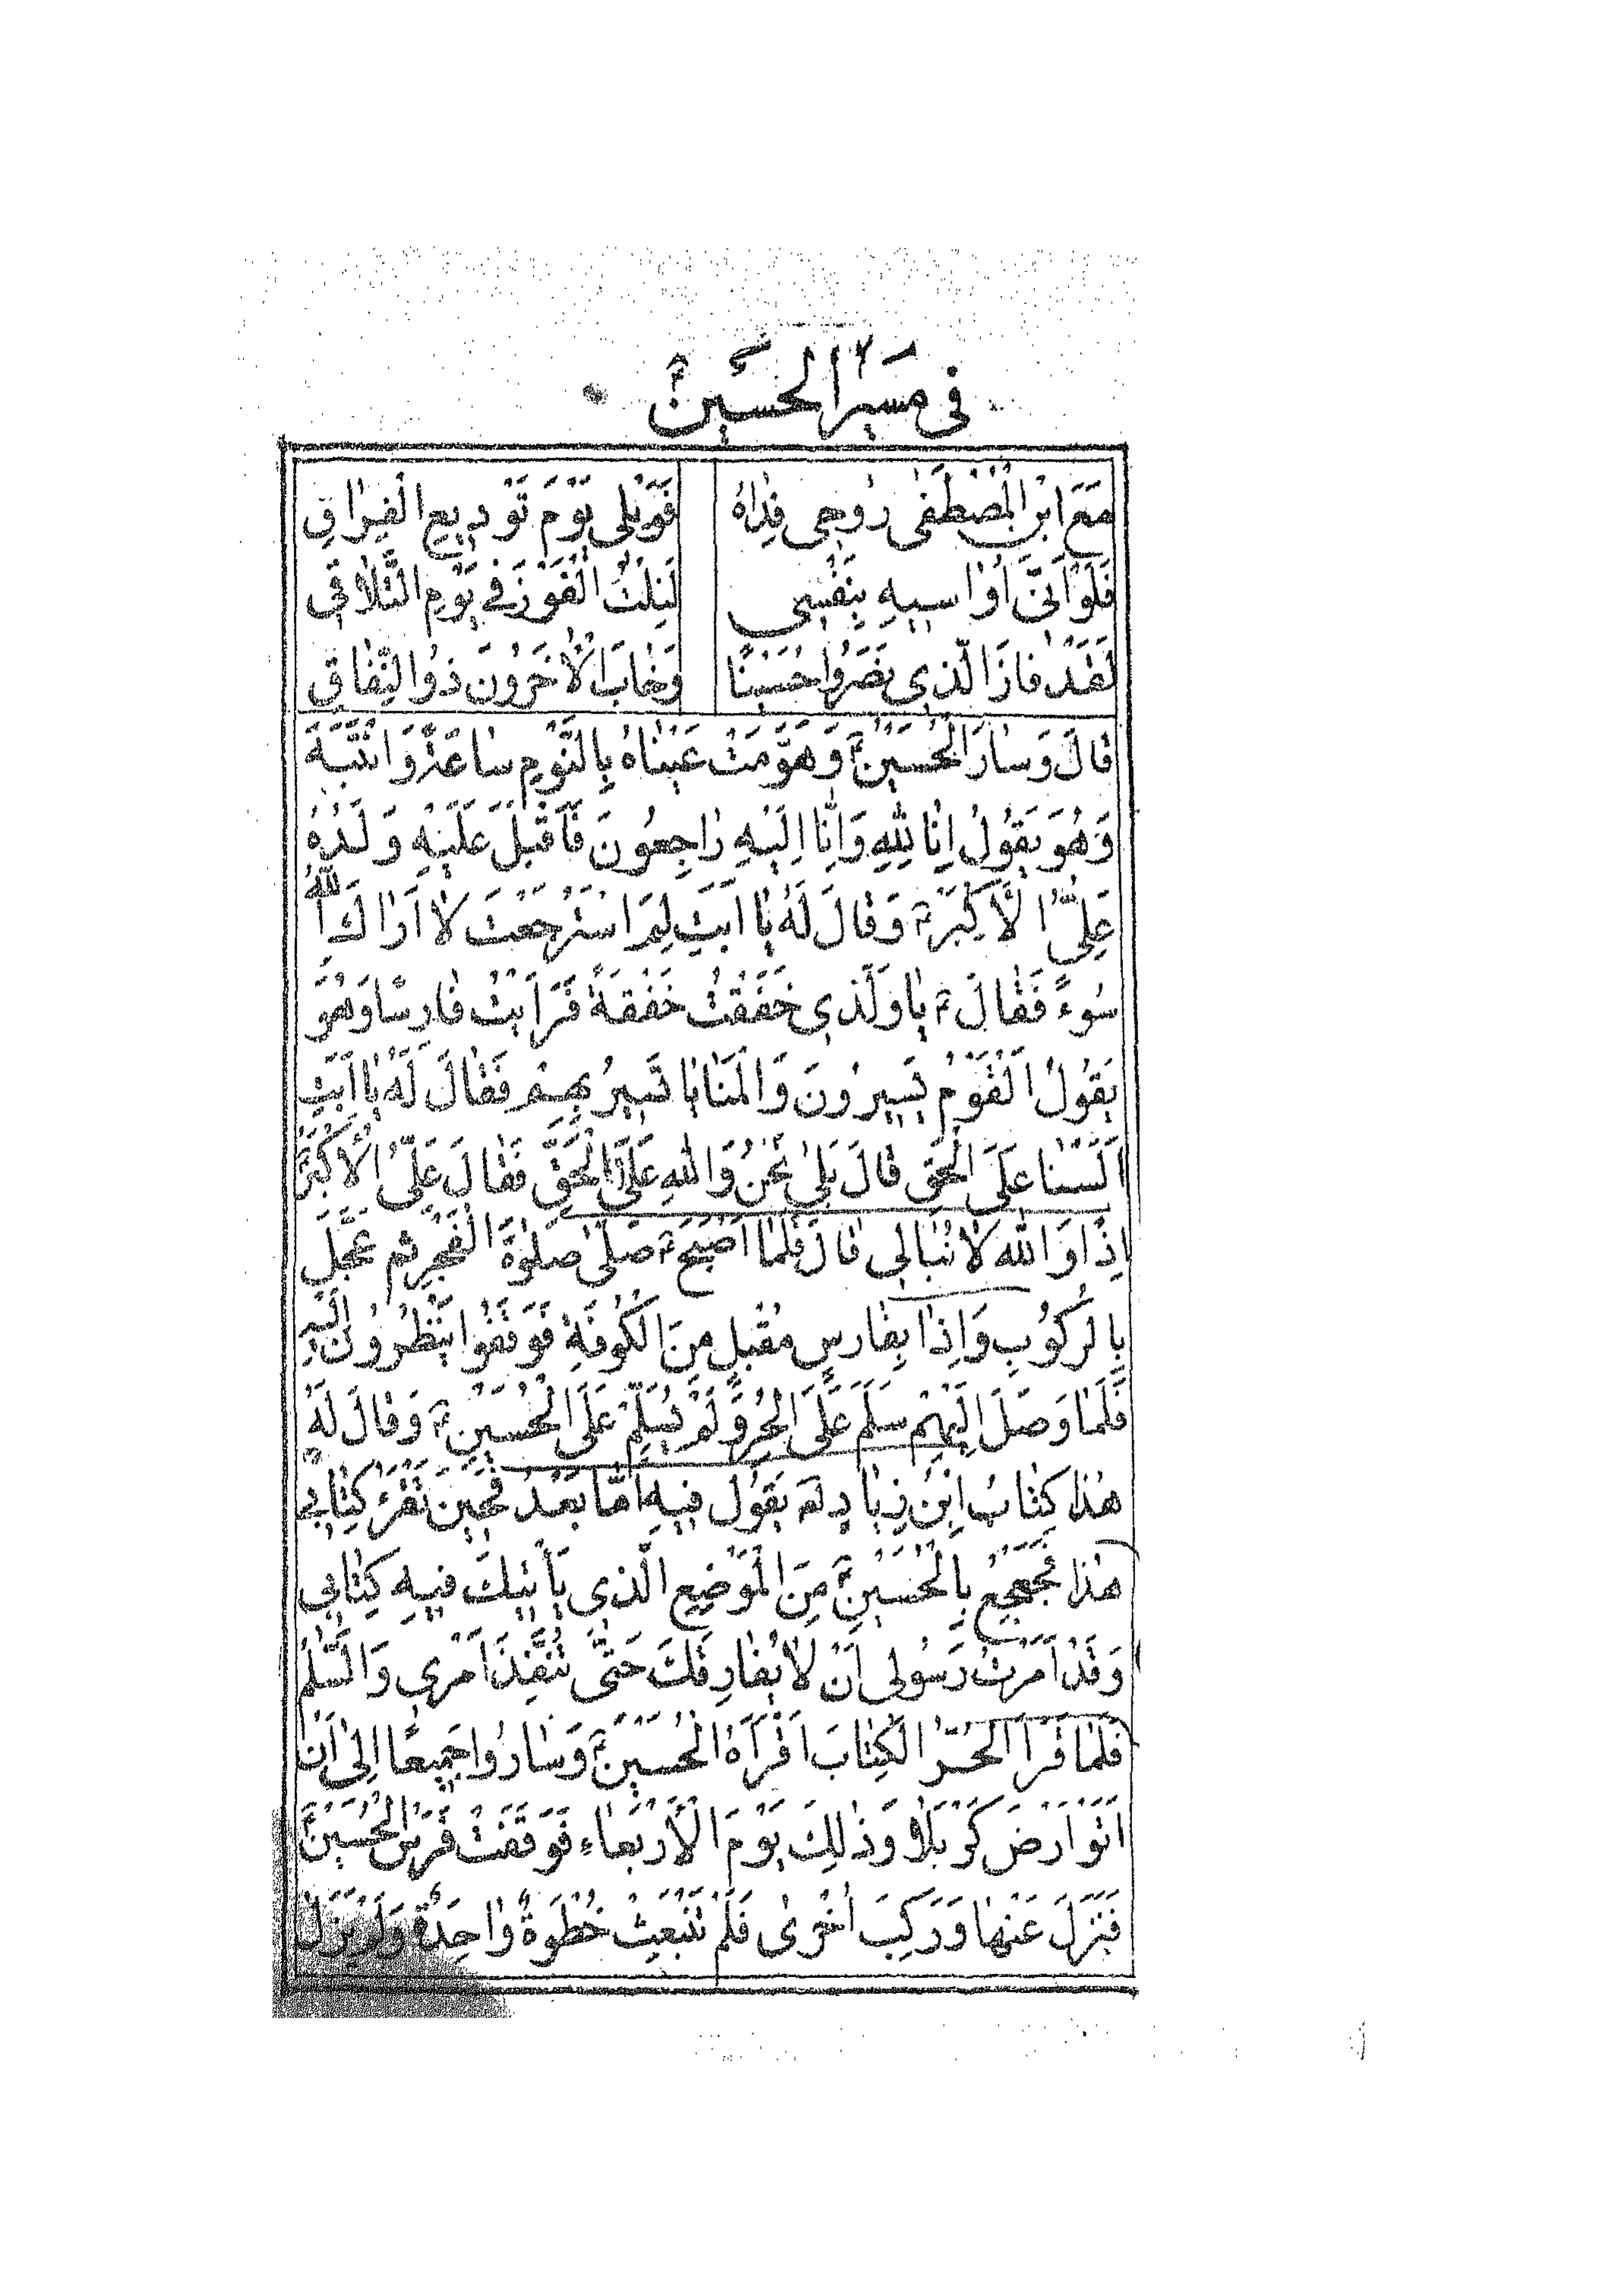 في مسير الحسين ع
مَعَ ابْنِ الْمُصْطَفٰى رُوحِي فِدٰاهُ فَوَيْلي يَوْمَ تَوْديعِ الْفِراقِ
فَلَوْ اَنّي اُوٰاسيهِ بِنَفْسي لَنِلْتُ الْفَوْزَ في يَوْمِ التَّلاٰقي
لَقَدْ فازَ الَّذي نَصَرُوا حُسَيْنًا وَخٰابَ الْاٰخَرُونَ ذَوُ النِّفٰاقِ
قٰالَ وَسٰارَ الْحُسَيْنُ ع وَهَوَّمَتْ عَيْنٰاهُ بِالنَّوْمِ سٰاعَةً وَانْتَبَهَ
وَهُوَ يَقُولُ اِنّٰا لِلّٰهِ وَاِنّٰا اِلَيْهِ رٰاجِعُونَ فَاَقْبَلَ عَلَيْهِ وَلَدُهُ
عَلِيٌّ الْاَكْبَرُ ع وَقٰالَ لَهُ يٰا اَبَتِ لِمَ اسْتَرْجَعْتَ لاٰ اَرٰاكَ اللهُ
سُوءً فَقٰالَ ع يٰا وَلَدي خَفَقْتُ خَفْقَةً فَرَاَيْتُ فٰارِسًا وَهُوَ
يَقُولُ الْقَوْمُ يَسيرُونَ وَالْمَنٰايٰا تَسيرُ بِهِمْ فَقٰالَ لَهُ يٰا اَبَتِ
اَلَسْنٰا عَلَى الْحَقِّ قٰالَ بَلىٰ نَحْنُ وَاللهِ عَلَى الْحَقِّ فَقٰالَ عَلِيٌّ الْاَكْبَرُ
اِذًا وَالله لاٰ نُبٰالي قٰالَ فَلَمّٰا اَصْبَحَ ع صَلّىٰ صَلوٰةَ الْفَجْرِ ثم عَجَّلَ
بِالرُّكُوبِ وَاِذٰا بِفٰارِسٍ مُقْبِلٍ مِنَ الْكُوفَةِ فَوَقَفُوا يَنْظُرُونَ اِلَيْهِ
فَلَمّٰا وَصَلَ اِلَيْهِمْ سَلَّمَ عَلَى الْحُرِّ وَلَمْ يُسَلِّمْ عَلَى الْحُسَيْنِ ع وَقٰالَ لَهُ
هٰذٰا كِتٰابُ ابْنُ زِيٰادٍ لع يَقُولُ فيهِ اَمّٰا بَعْدُ فَحينَ تَقْرَءُ كِتٰابي
هٰذٰا فَجَعْجِعْ بِالْحُسَيْنِ ع مِنَ الْمَوْضِعِ الَّذي يَاْتيكَ فيهِ كِتٰابي
وَقَدْ اَمَرْتُ رَسُولي اَنْ لاٰ يُفٰارِقَكَ حَتّىٰ تُنَفِّذَ اَمْري وَالسَّلٰمُ
فَلَمّٰا قَرَاَ الْحُرُّ الْكِتٰابَ اَقْرَاَهُ الْحُسَيْنَ ع وَسٰارُوا جَميعًا اِلىٰ اَنْ
اَتَوْا اَرْضَ كَرْبَلاٰ وَذٰلِكَ يَوْمَ الْاَرْبَعٰاءِ فَوَقَفَتْ فَرَسُ الْحُسَيْنِ ع
فَنَزَلَ عَنْهٰا وَرَكِبَ اُخْرىٰ فَلَمْ تَنْبَعِثْ خُطْوَةً وٰاحِدَةً وَلَمْ يَزَلْ